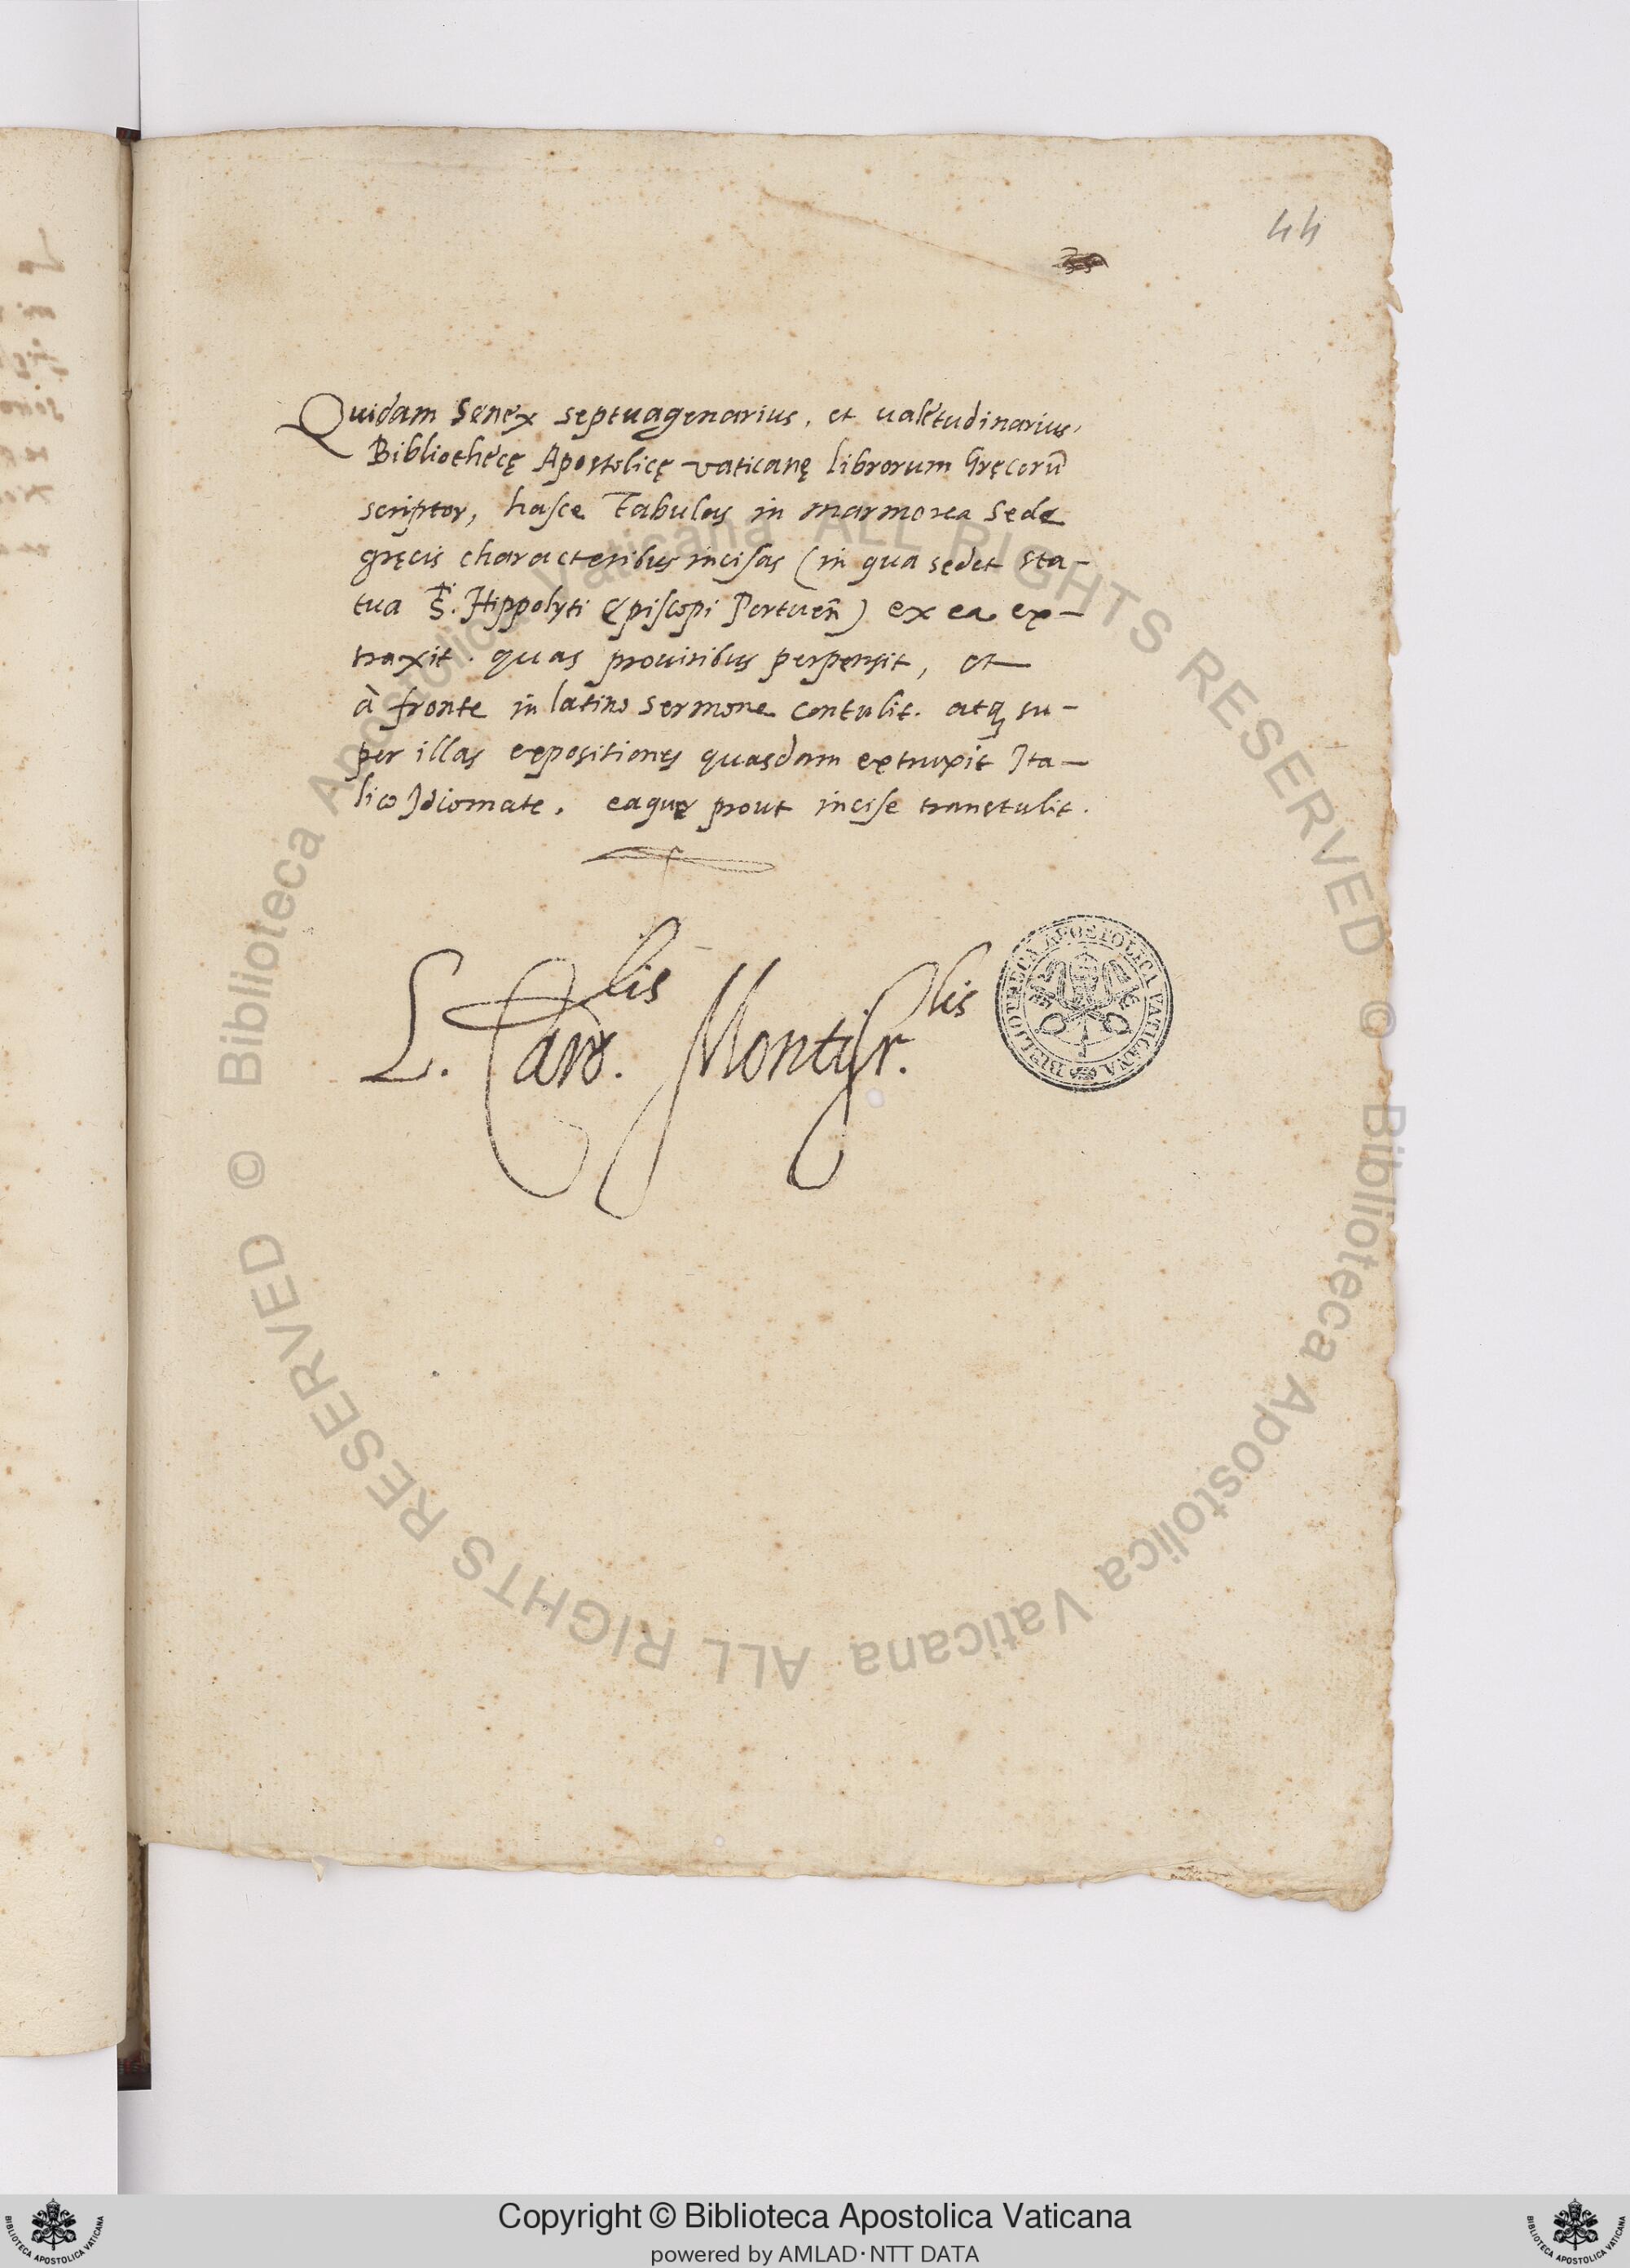 44
Quidam Senex septuagenarius, et ualetudinarius,
Bibliothecę Apostolicę vaticanę librorum Gręcorū
scriptor, hasce Tabulas in marmorea Sede
gręcis characteribus incisas (in qua sedet sta-
tua S.ti Hippolyti Episcopi Portueñ) ex ea ex-
traxit. quas prouiribus perpensit, et
à fronte in latino sermone contulit. atq su-
per illas expositiones quasdam extruxit Ita-
lico Idiomate. eaque prout incise transtulit.
L. Car.lis Montisr.lis
BIBLIOTECA APOSTOLICA VATICANA
© Biblioteca Apostolica Vaticana ALL RIGHTS RESERVED
© Biblioteca Apostolica Vaticana ALL RIGHTS RESERVED
Copyright © Biblioteca Apostolica Vaticana
powered by AMLAD·NTT DATA
BIBLIOTECA APOSTOLICA VATICANA
BIBLIOTECA APOSTOLICA VATICANA